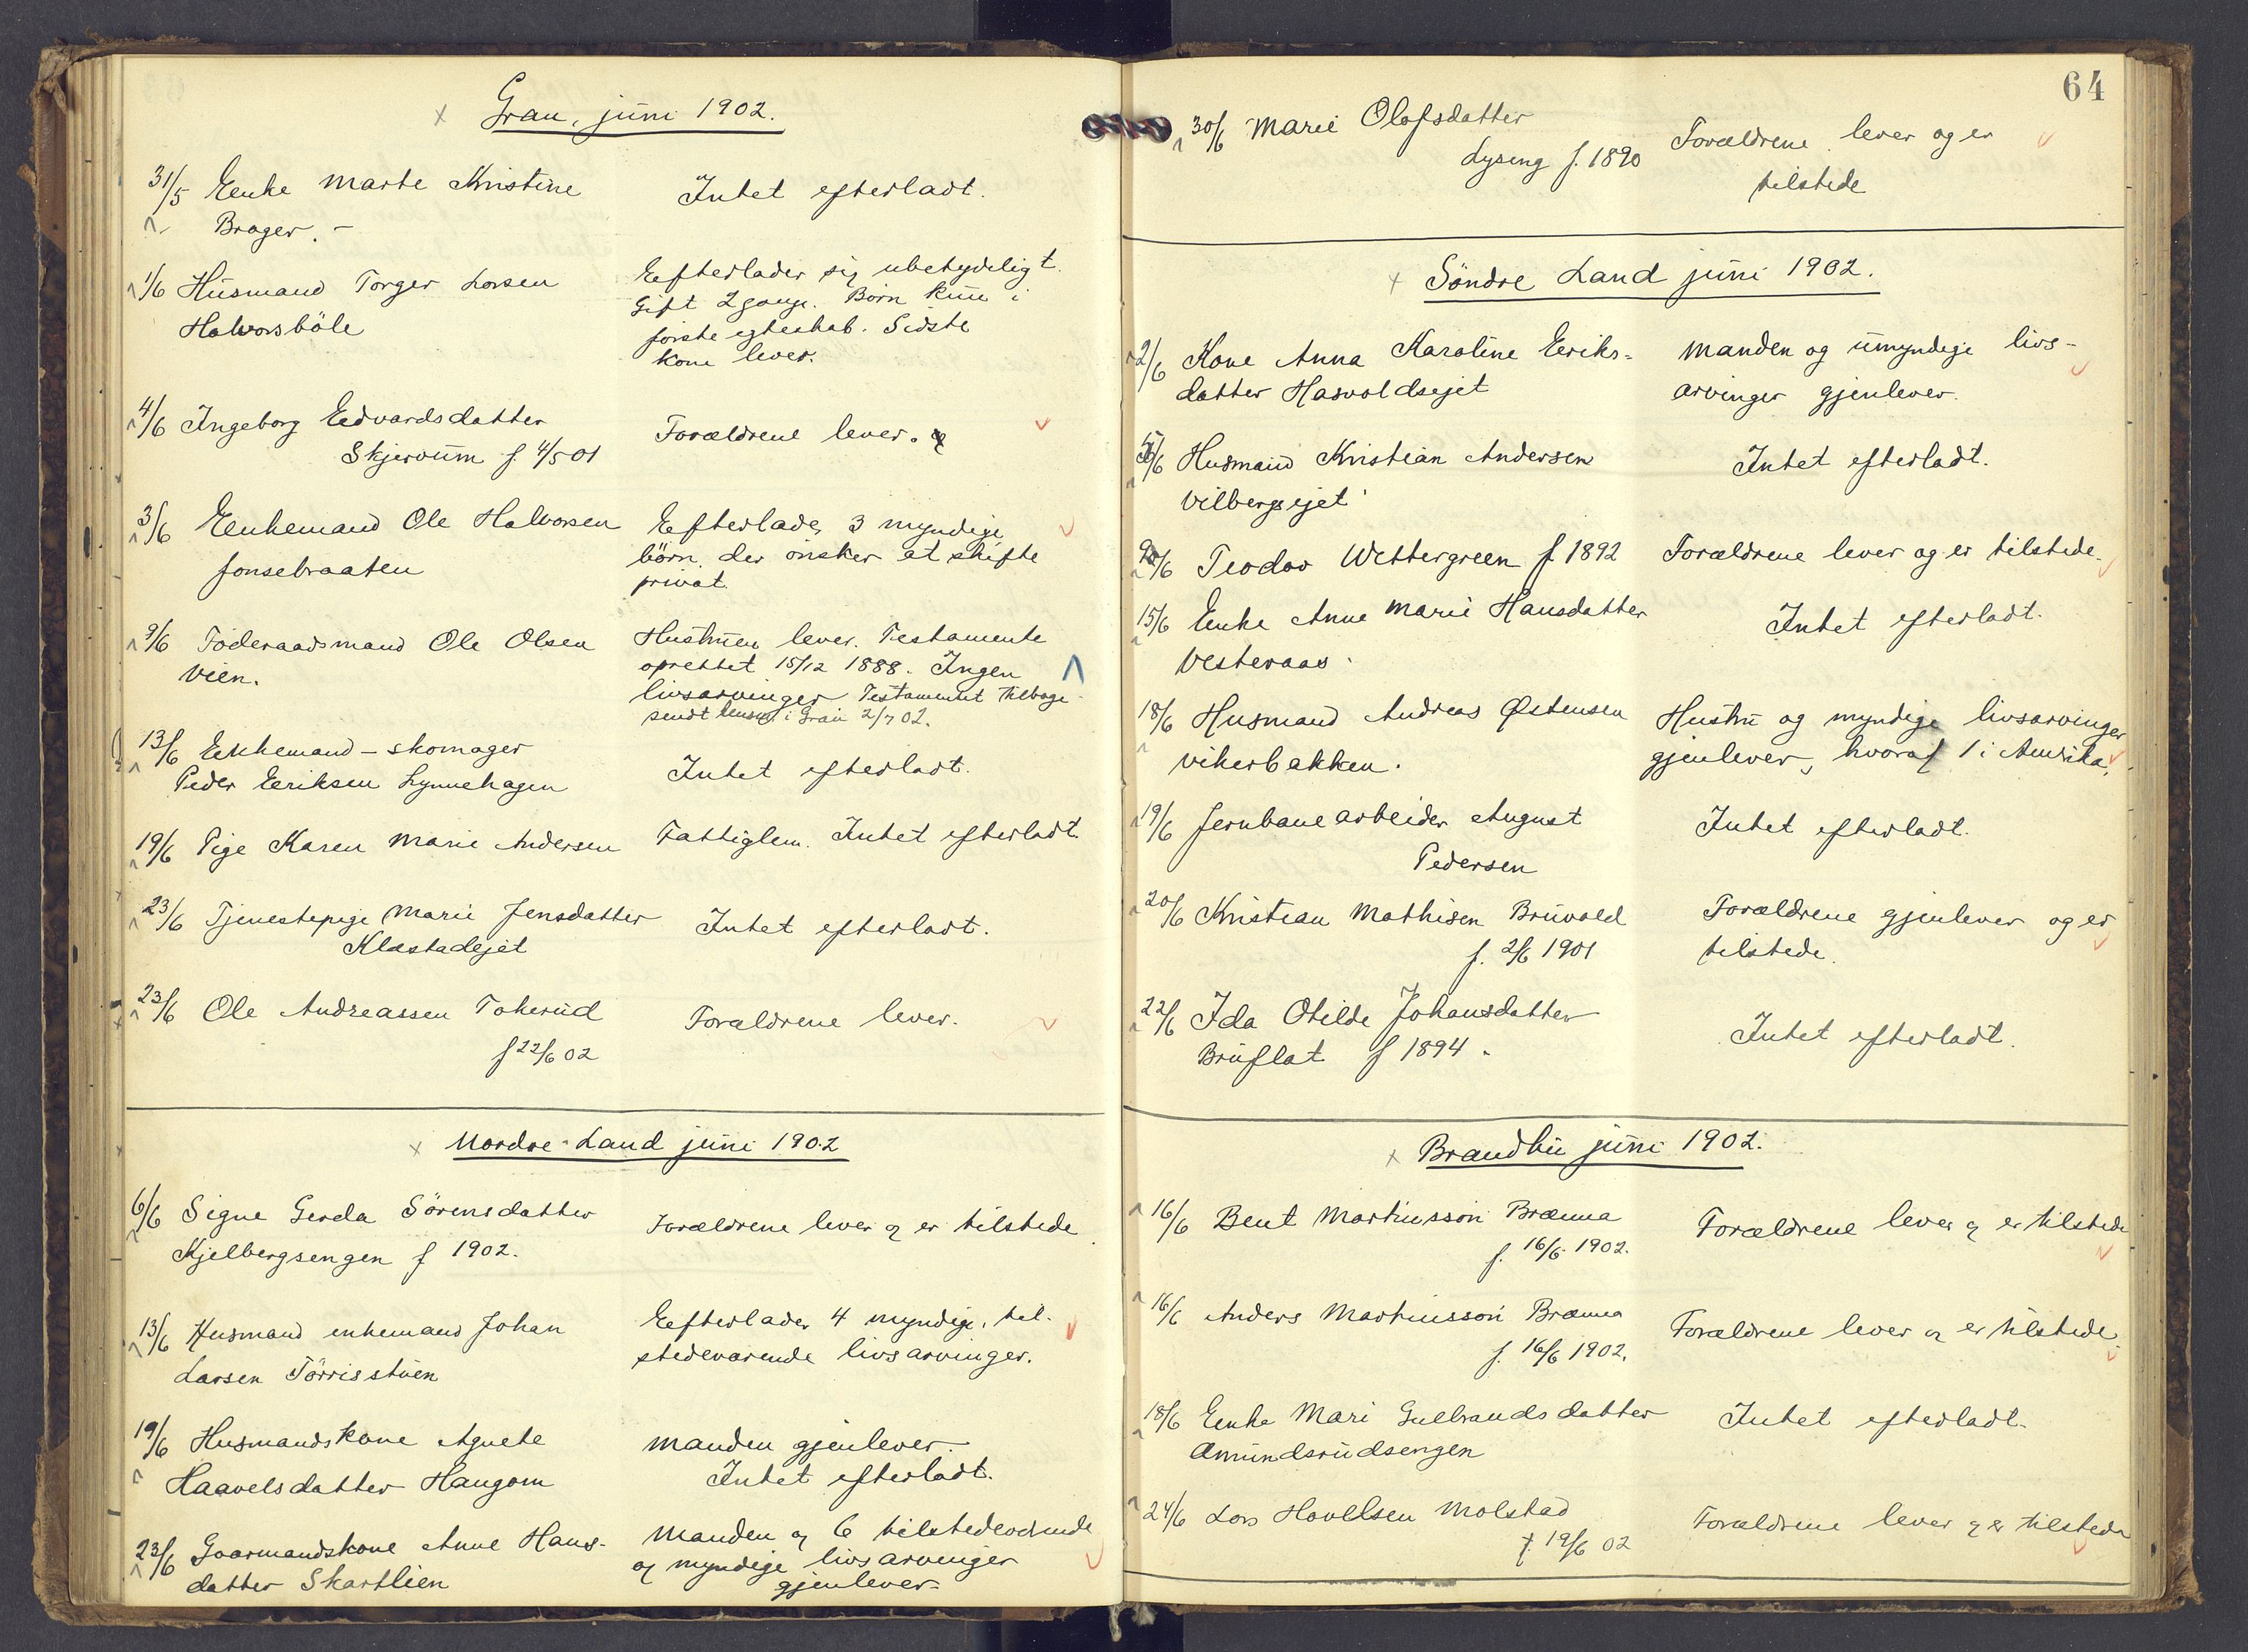 Gran, juni 1902.
31/5 Eenke Marte Kristine
Brager. –
Intet efterladt.
1/6 Husmand Torger Larsen
Halvorsböle
Eefterlader sig ubetydeligt.
Gift 2 gange. Börn kun i
förste egteskab. Sidste
kone lever.
4/6 Ingeborg Eedvardsdatter
Skjervum f. 4/5 01
Forældrene lever.
3/6 Eenkemand Ole Halvorsen
Jonsebraaten
Eefterlader 3 myndige
börn, der önsker at skifte
privat.
9/6 Föderaadsmand Ole Olsen
Vien.
Hustruen lever. Testamente
oprettet 15/12 1888. Ingen
livsarvinger Testamentet tilbage-
sendt lensm. i Gran 2/7 02.
13/6 Eenkemand – skomager
Peder Eeriksen Lynnehagen
Intet efterladt.
19/6 Pige Karen Marie Andersen
Fattiglem. Intet efterladt
23/6 Tjenestepige Marie Jensdatter
Klæstadejet
Intet efterladt.
23/6 Ole Andreassen Tokerud
f 22/6 02
Forældrene lever.
Nordre-Land juni 1902
6/6 Signe Gerda Sörensdatter
Kjelbergsengen f 1902.
Forældrene lever og er tilstede
13/6 Husmand enkemand Johan
Larsen Törrisstuen
Eefterlader 4 myndige, til-
stedeværende livsarvinger.
19/6 Husmandskone Agnete
Haavelsdatter Haugom
Manden gjenlever.
Intet efterladt.
23/6 Gaarmandskone Anne Hans-
datter Skartlien
Manden og 6 tilstedeværende
og myndige livsarvinger
gjenlever.
64
30/6 Marie Olafsdatter
Lyseng f. 1890
Forældrene lever og er
tilstede
Söndre Land juni 1902.
2/6 Kone Anna Karoline Eeriks-
datter Hasvoldsejet
Manden og umyndige livs-
arvinger gjenlever.
5/6 Husmand Kristian Andersen
Vilbergsejet
Intet efterladt.
9/6 Teodor Wettergreen f 1892
Forældrene lever og er tilstede.
15/6 Eenke Anne Marie Hansdatter
Vesteraas.
Intet efterladt.
18/6 Husmand Andreas Østensen
Vikerbakken.
Hustru og myndige livsarvinger
gjenlever, hvoraf 1 i Amerika.
19/6 Jernbanearbeider August
Pedersen
Intet efterladt.
20/6 Kristian Mathisen Bruvold
f. 2/6 1901
Forældrene gjenlever og er
tilstede.
22/6 Ida Otilde Johansdatter
Bruflat f 1894.
Intet efterladt.
Brandbu juni 1902.
16/6 Bent Martinsson Brænna
f. 16/6 1902.
Forældrene lever og er tilstede
16/6 Anders Martinsson Brænna
f. 16/6 1902.
Forældrene lever og er tilstede.
18/6 Eenke Mari Gulbrandsdatter
Amundsrudsengen
Intet efterladt.
24/6 Lars Hovelsen Molstad
f. 19/6 02
Forældrene lever og er tilstede